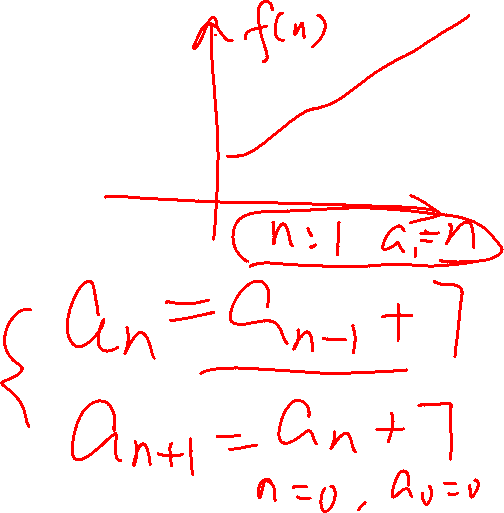 f(n)
n:1 a₁=n
aₙ=aₙ₋₁+7
aₙ₊₁=aₙ+7
n=0, a₀=0